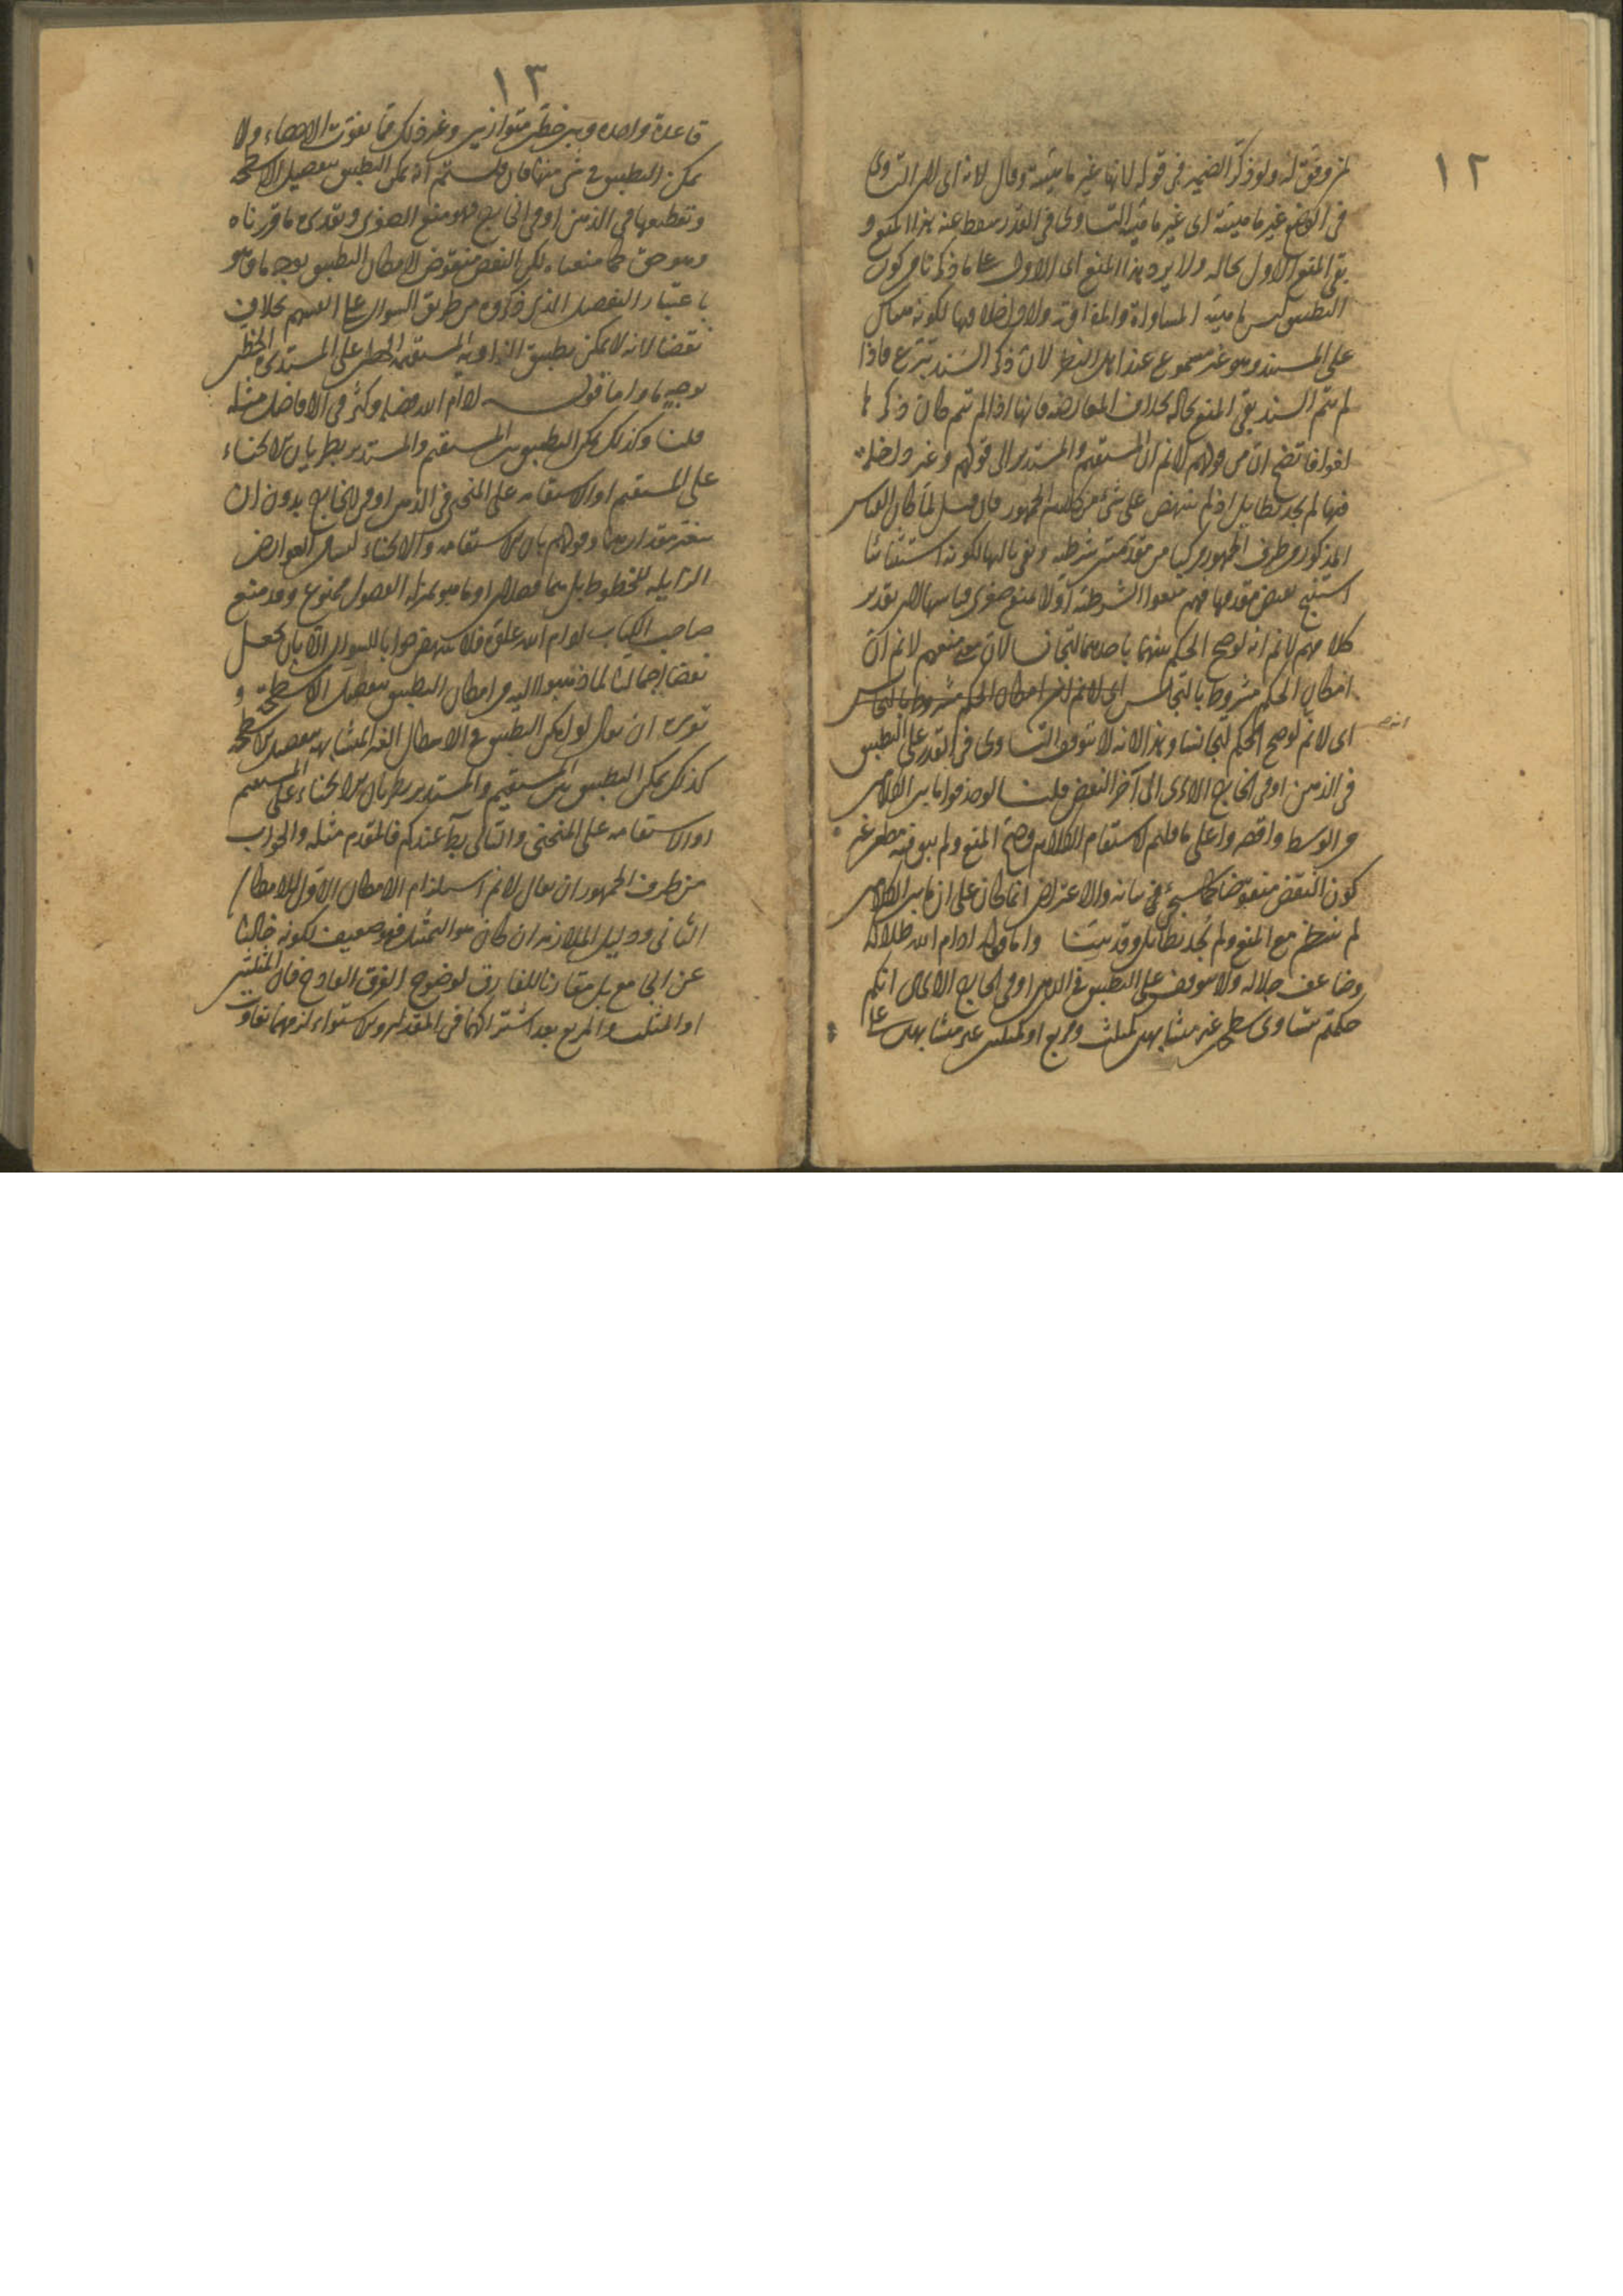 ١٢
لمن وفق له ولو ذكر الضمير في قوله لانها غير ما مينته وقال لانه اى لان التساوى
في الوضع غير ما مينته اى غير ما مينة التساوى في القدر سقط عنه هذا المنع و
بقى المنع الاول بحاله ولا يرد هذا المنع اى الاول على ما ذكرنا من كون
التطبيق ليس ما مينه المساواة والمفاوتة ولا داخلا فيها لكونه
على المستند وهو غير مسموع عند اهل النظر لان ذكر السند تبرع فاذا
لم يتم السند بقى المنع بحاله بخلاف المعارضة فانها اذا لم تتم كان ذكرها
لغوا فاتضح ان من قولهم لا نم ان المستقيم والمستدير الى قولهم وغير داخلة
فيها لم يجد بطايل اذ لم ينتهض على شئ من كلام الجمهور فان قيل لما كان القياس
المذكور من طرف الجمهور مركبا من مقدمتين شرطية لكونه استثنائيا
استنتج نقيض مقدمها فهم منعوا الشرطية اولا بمنع صغرى قياسها لان تقدير
كلامهم لا نم انه لو صح الحكم بينهما باحدهما لتجانسا لان معنى منعهم لا نم ان
امكان الحكم مشروط بالتجانس اى لا نم ان امكان الحكم مشروط بالتجانس
اى لا نم لو صح الحكم لتجانسا وهذا لانه لا يتوقف التساوى في القدر على التطبيق
في الذهن او في الخارج الى آخر النقض قلنا لو حذفوا ما بين الكلامين
من الوسط واقتصروا على ما قلتم لاستقام الكلام وصح المنع ولم يبق فيه مطعن غير
كون النقض منقوضا كما سيجئ في بيانه والاعتراض انما كان على ان ما بين الكلامين
لم ينتظم مع المنع ولم يجد بطائل وقد بينا واما قوله ادام الله ظلاله
وضاعف جلاله ولا يتوقف على التطبيق في الذهن او في الخارج انكم
حكمتم بتساوى سطحين غير متشابهين كمثلث ومربع او كمثلثين غير متشابهين على
١٣
قاعدة واحدة وبين خطين متوازيين وغير ذلك مما يفوت الاحصاء ولا
يمكن التطبيق في شئ منها فان قلتم انه يمكن التطبيق بتفصيل الاسطحة
وتقطيعها في الذهن او في الخارج فهو منع الصغرى وتقديره ما قررناه
وهو حق كما منعناه لكن النقض منقوض لامكان التطبيق بوجه ما وهو
باعتبار التفصيل الذي ذكروه من طريق السوال على انفسهم بخلاف
نقضنا لانه لا يمكن تطبيق الزاوية المستقيمة الخطين على المستديرة الخطين
بوجه ما واما قوله ادام الله فضله وكثر في الافاضل مثله
قلنا وكذلك يمكن التطبيق بين المستقيم والمستدير بطريان الانحناء
على المستقيم او الاستقامة على المنحنى في الذهن او في الخارج بدون ان
يتغير مقدارهما وقولهم بان الاستقامة والانحناء ليسا من العوارض
الزايلة للخطوط بل هما فصلان او ما هو بمنزلة الفصول ممنوع وقد منع
صاحب الكتاب ادام الله علوه فلا ينتهض جوابا للسوال الا بان يجعل
نقضا اجماليا لما ذهبوا اليه من امكان التطبيق بتفصيل الاسطحة و
توجيهه ان يقال لو امكن التطبيق في الاشكال الغير المتشابهة بتفصيل الاسطحة
كذلك يمكن التطبيق بين المستقيم والمستدير بطريان الانحناء على المستقيم
او الاستقامة على المنحنى والتالى بط عندكم فالمقدم مثله والجواب
من طرف الجمهور ان يقال لا نم استلزام الامكان الاول للامكان
الثاني ودليل الملازمة ان كان هو التمثيل فهو ضعيف لكونه خاليا
عن الجامع بل مقارنا للفارق لوضوح الفرق القادح فان المثلثين
او المثلث والمربع بعد اشتراكهما في المقدار والاستواء لزمهما تفاوت